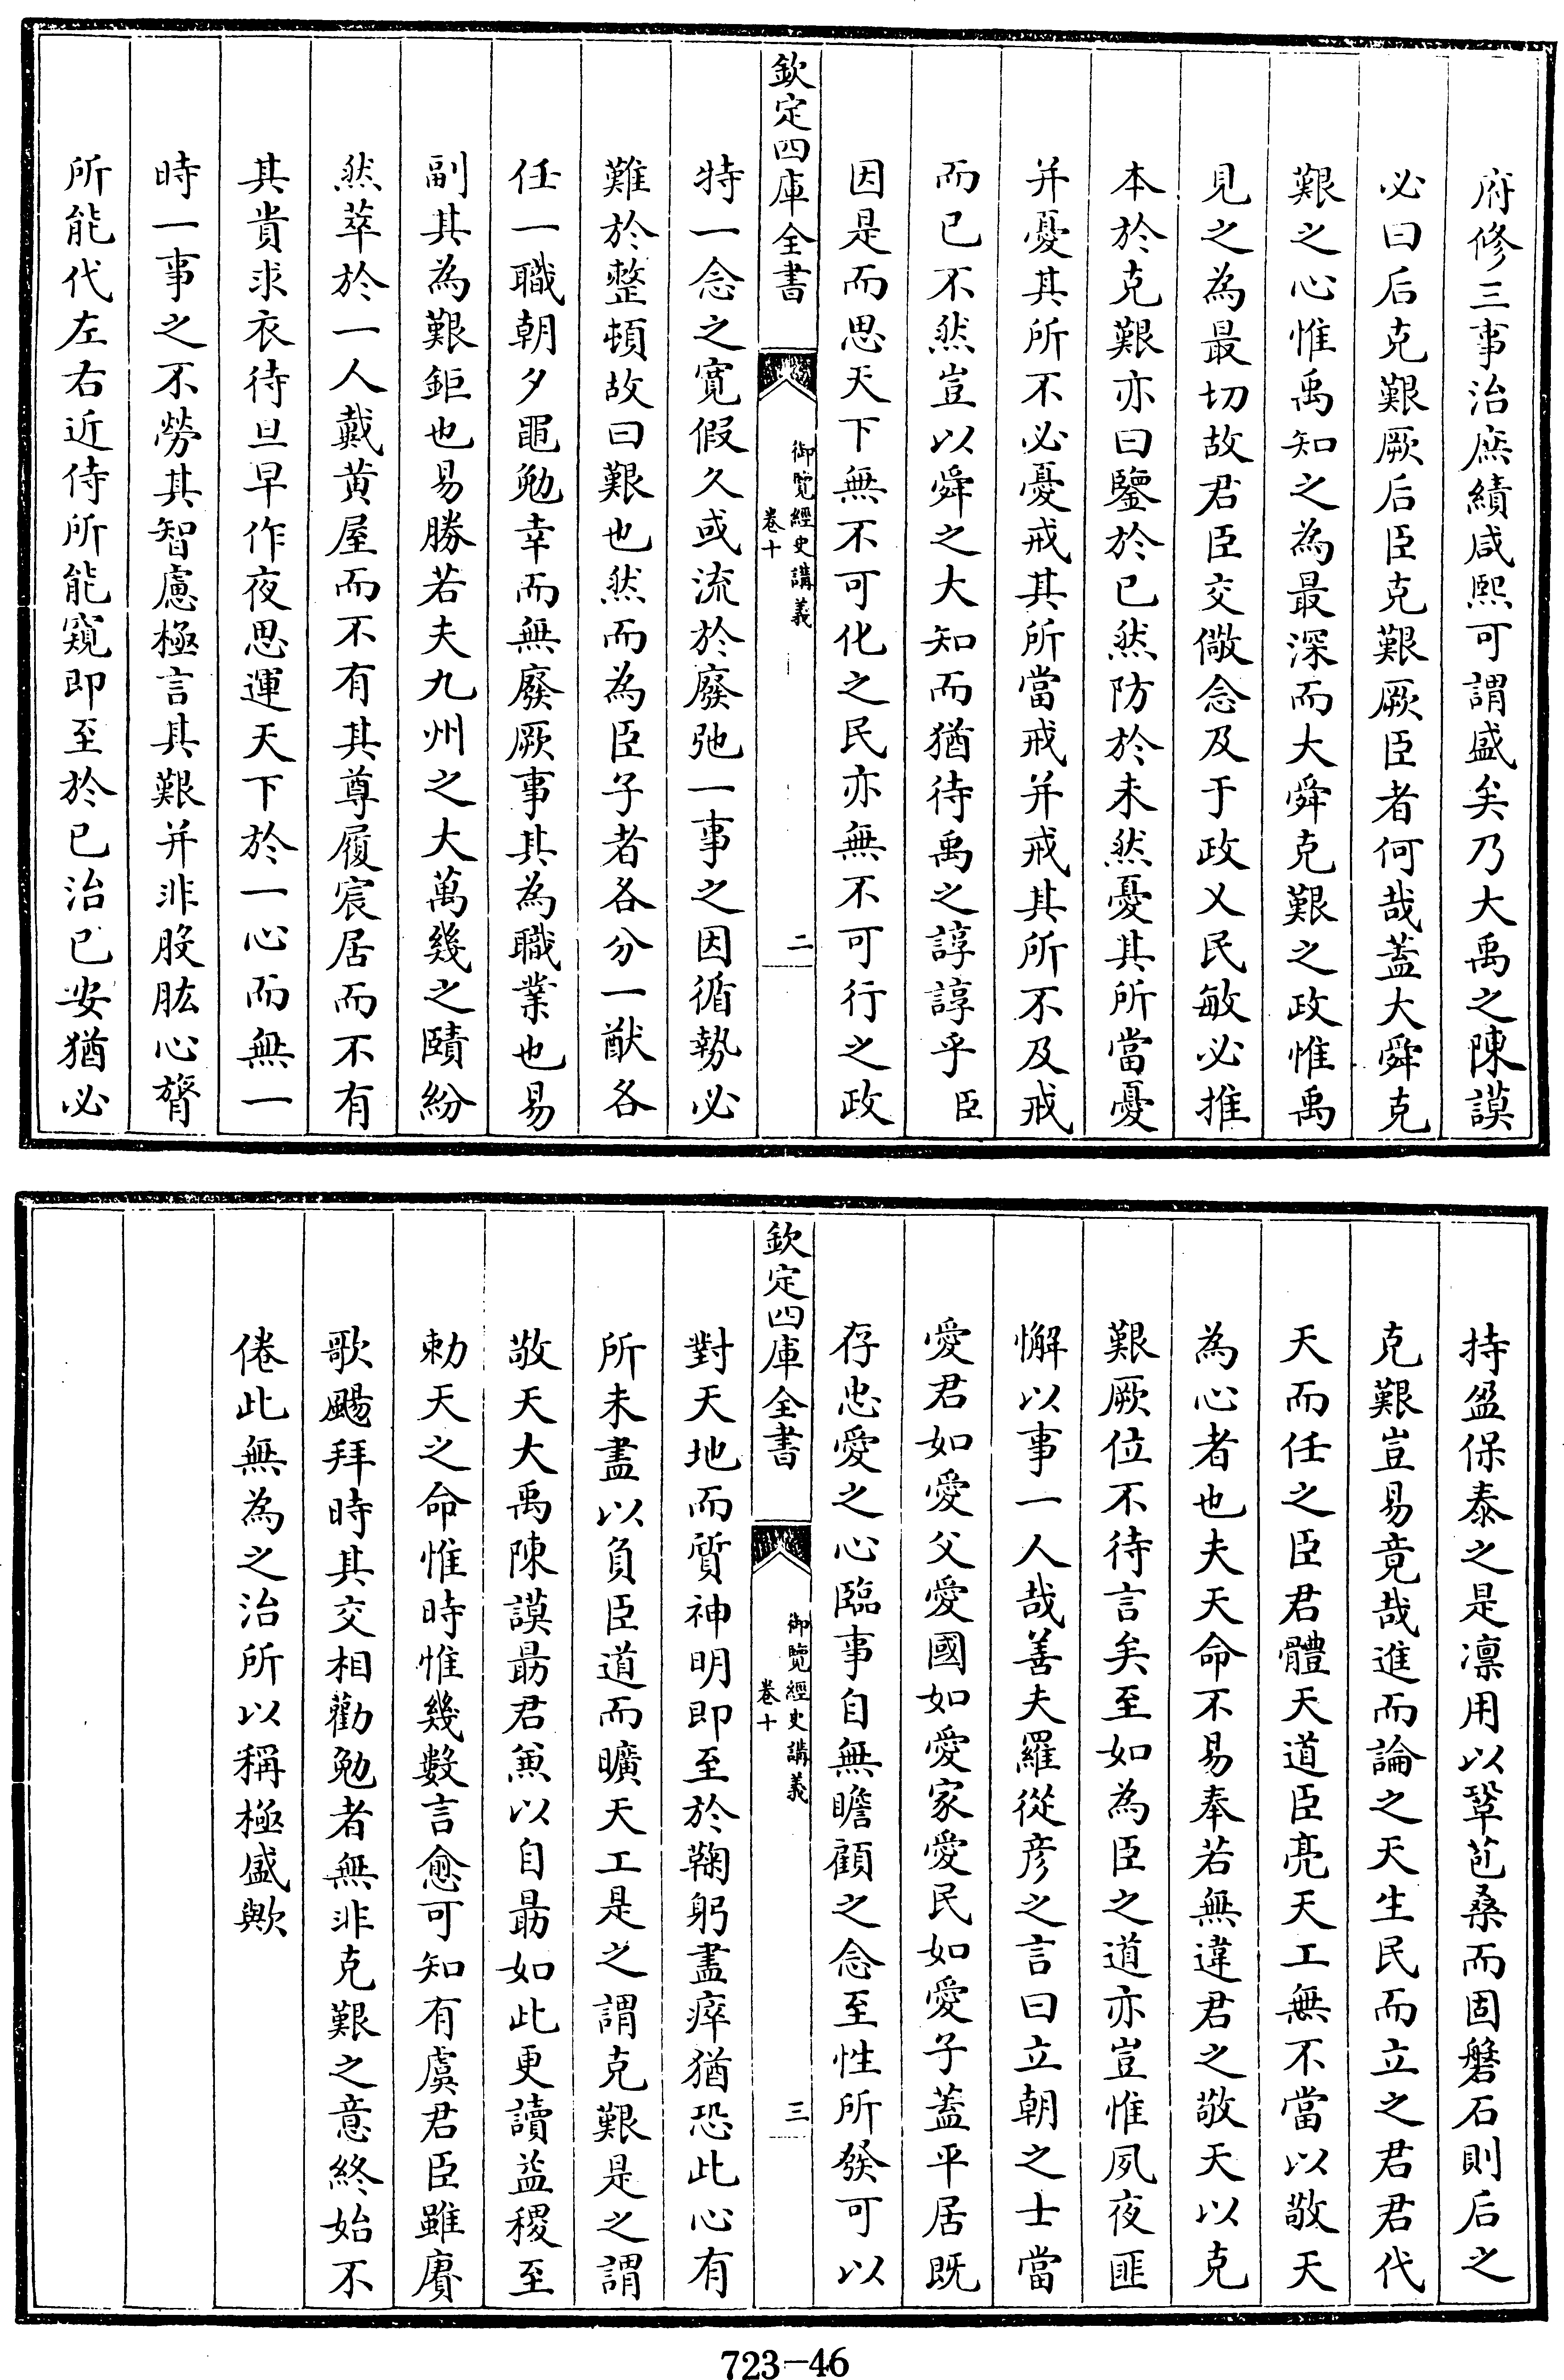 府修三事治庶績咸熙可謂盛矣乃大禹之陳謨
必曰后克艱厥后臣克艱厥臣者何哉蓋大舜克
艱之心惟禹知之為最深而大舜克艱之政惟禹
見之為最切故君臣交儆念及于政乂民敏必推
本於克艱亦曰鑒於已然防於未然憂其所當憂
并憂其所不必憂戒其所當戒并戒其所不及戒
而已不然豈以舜之大知而猶待禹之諄諄乎臣
因是而思天下無不可化之民亦無不可行之政
欽定四庫全書
御覽經史講義
卷十
二
特一念之寬假久或流於廢弛一事之因循勢必
難於整頓故曰艱也然而為臣子者各分一猷各
任一職朝夕黽勉幸而無廢厥事其為職業也易
副其為艱鉅也易勝若夫九州之大萬幾之賾紛
然萃於一人戴黃屋而不有其尊履宸居而不有
其貴求衣待旦早作夜思運天下於一心而無一
時一事之不勞其智慮極言其艱并非股肱心膂
所能代左右近侍所能窺即至於已治已安猶必
持盈保泰之是凛用以鞏苞桑而固磐石則后之
克艱豈易竟哉進而論之天生民而立之君君代
天而任之臣君體天道臣亮天工無不當以敬天
為心者也夫天命不易奉若無違君之敬天以克
艱厥位不待言矣至如為臣之道亦豈惟夙夜匪
懈以事一人哉善夫羅從彦之言曰立朝之士當
愛君如愛父愛國如愛家愛民如愛子蓋平居既
存忠愛之心臨事自無瞻顧之念至性所發可以
欽定四庫全書
御覽經史講義
卷十
三
對天地而質神明即至於鞠躬盡瘁猶恐此心有
所未盡以負臣道而曠天工是之謂克艱是之謂
敬天大禹陳謨勗君兼以自勗如此更讀益稷至
勅天之命惟時惟幾數言愈可知有虞君臣雖賡
歌颺拜時其交相勸勉者無非克艱之意終始不
倦此無為之治所以稱極盛歟
723-46